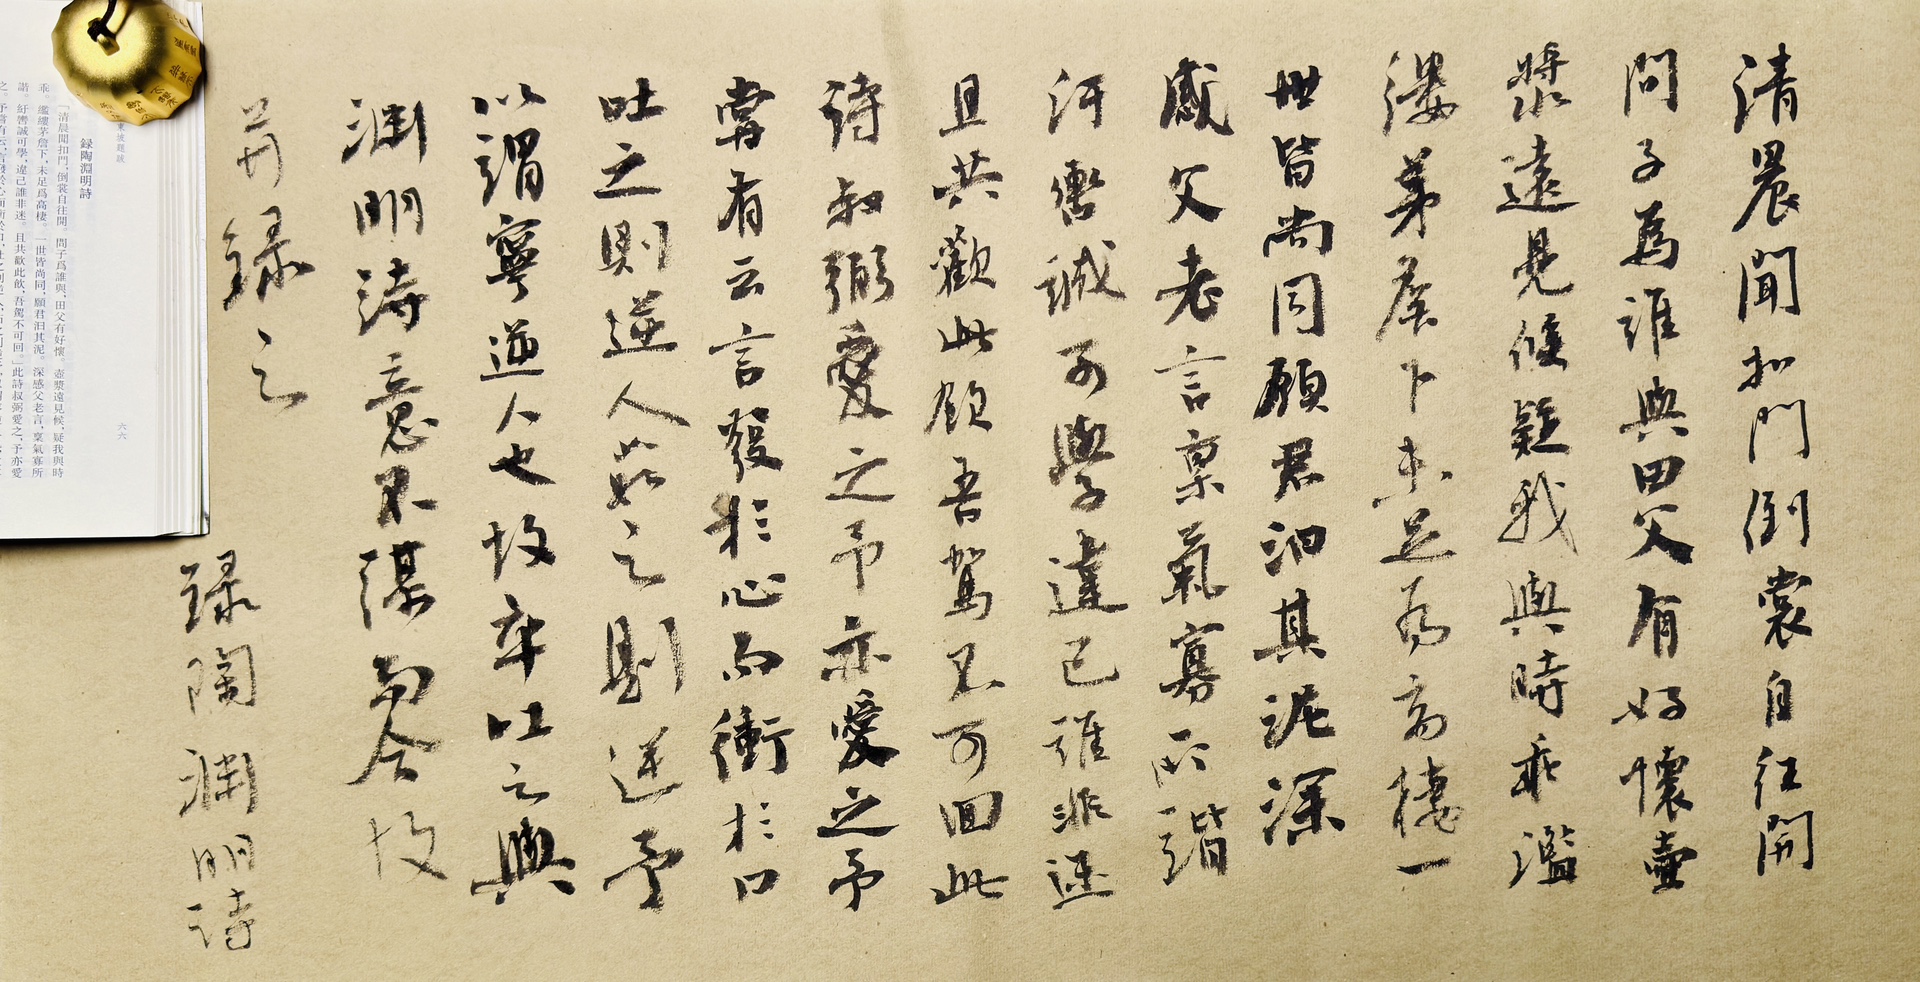 清晨聞扣門倒裳自往開
問子爲誰與田父有好懷壷
漿遠見候疑我與時乖濫
縷茅詹下未足爲高棲一
世皆尚同願君汩其泥深
感父老言稟氣寡所諧
汙轡誠可學違己誰非迷
且共歡此飲吾駕不可回此
詩叔弼愛之予亦愛之予
嘗有云言發於心而衝於口
吐之則逆人茹之則逆予
以謂寧逆人也故卒吐之與
淵明詩意不謀而合故
并録之
録陶淵明詩
東坡題跋
録陶淵明詩
「清晨聞扣門,倒裳自往開。問子爲誰與,田父有好懷。壺漿遠見候,疑我與時
乖。襤縷茅詹下,未足爲高棲。一世皆尚同,願君汩其泥。深感父老言,稟氣寡所
諧。紆轡誠可學,違己誰非迷。且共歡此飲,吾駕不可回。」此詩叔弼愛之,予亦愛
六六